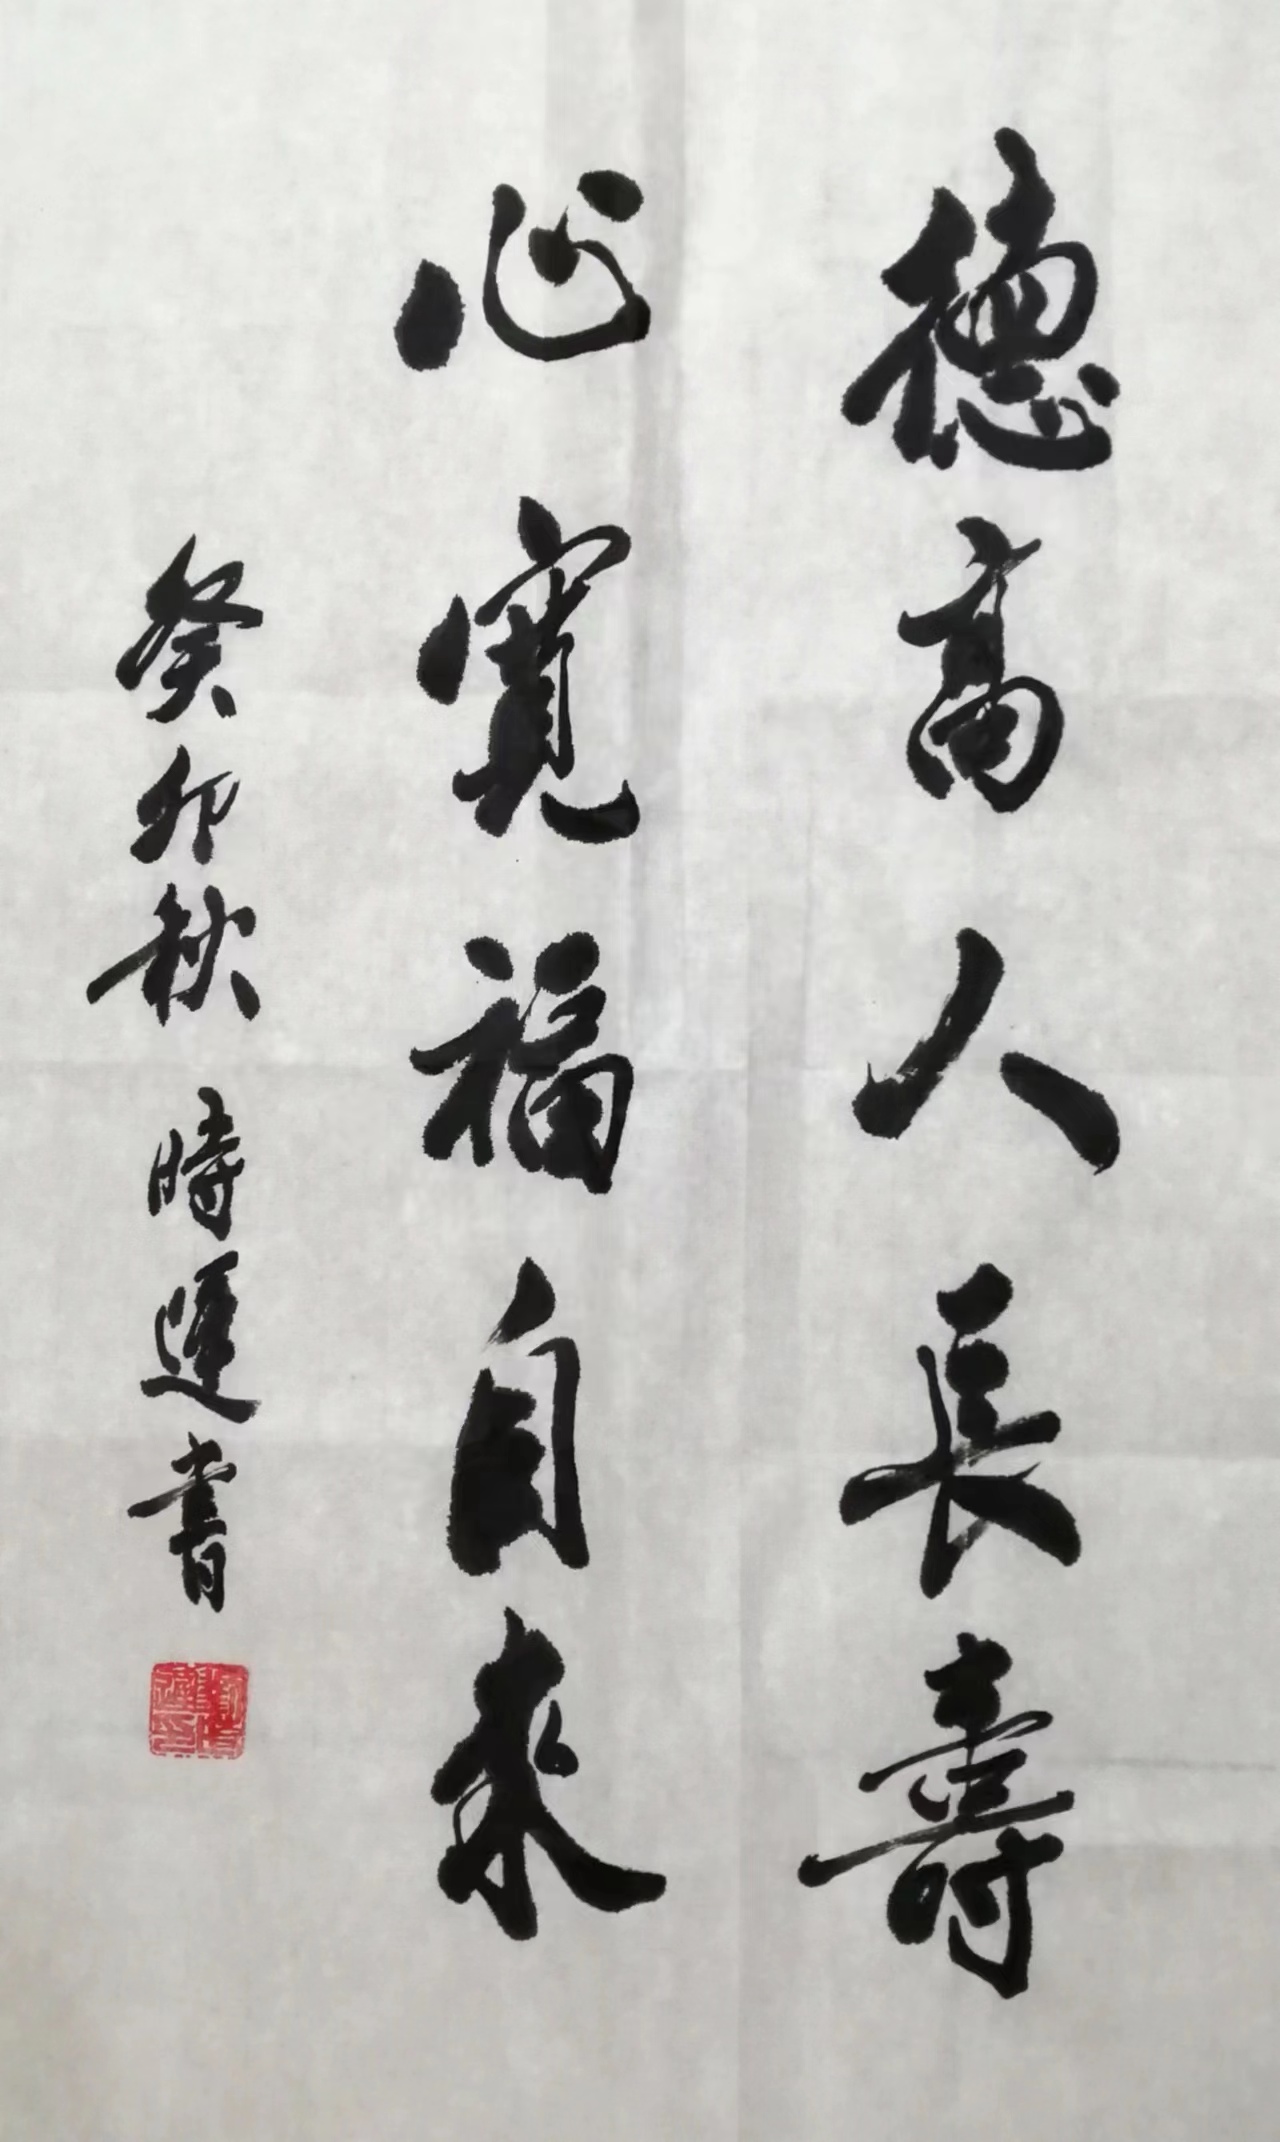 德高人長壽
心寬福自来
癸卯秋 時運書